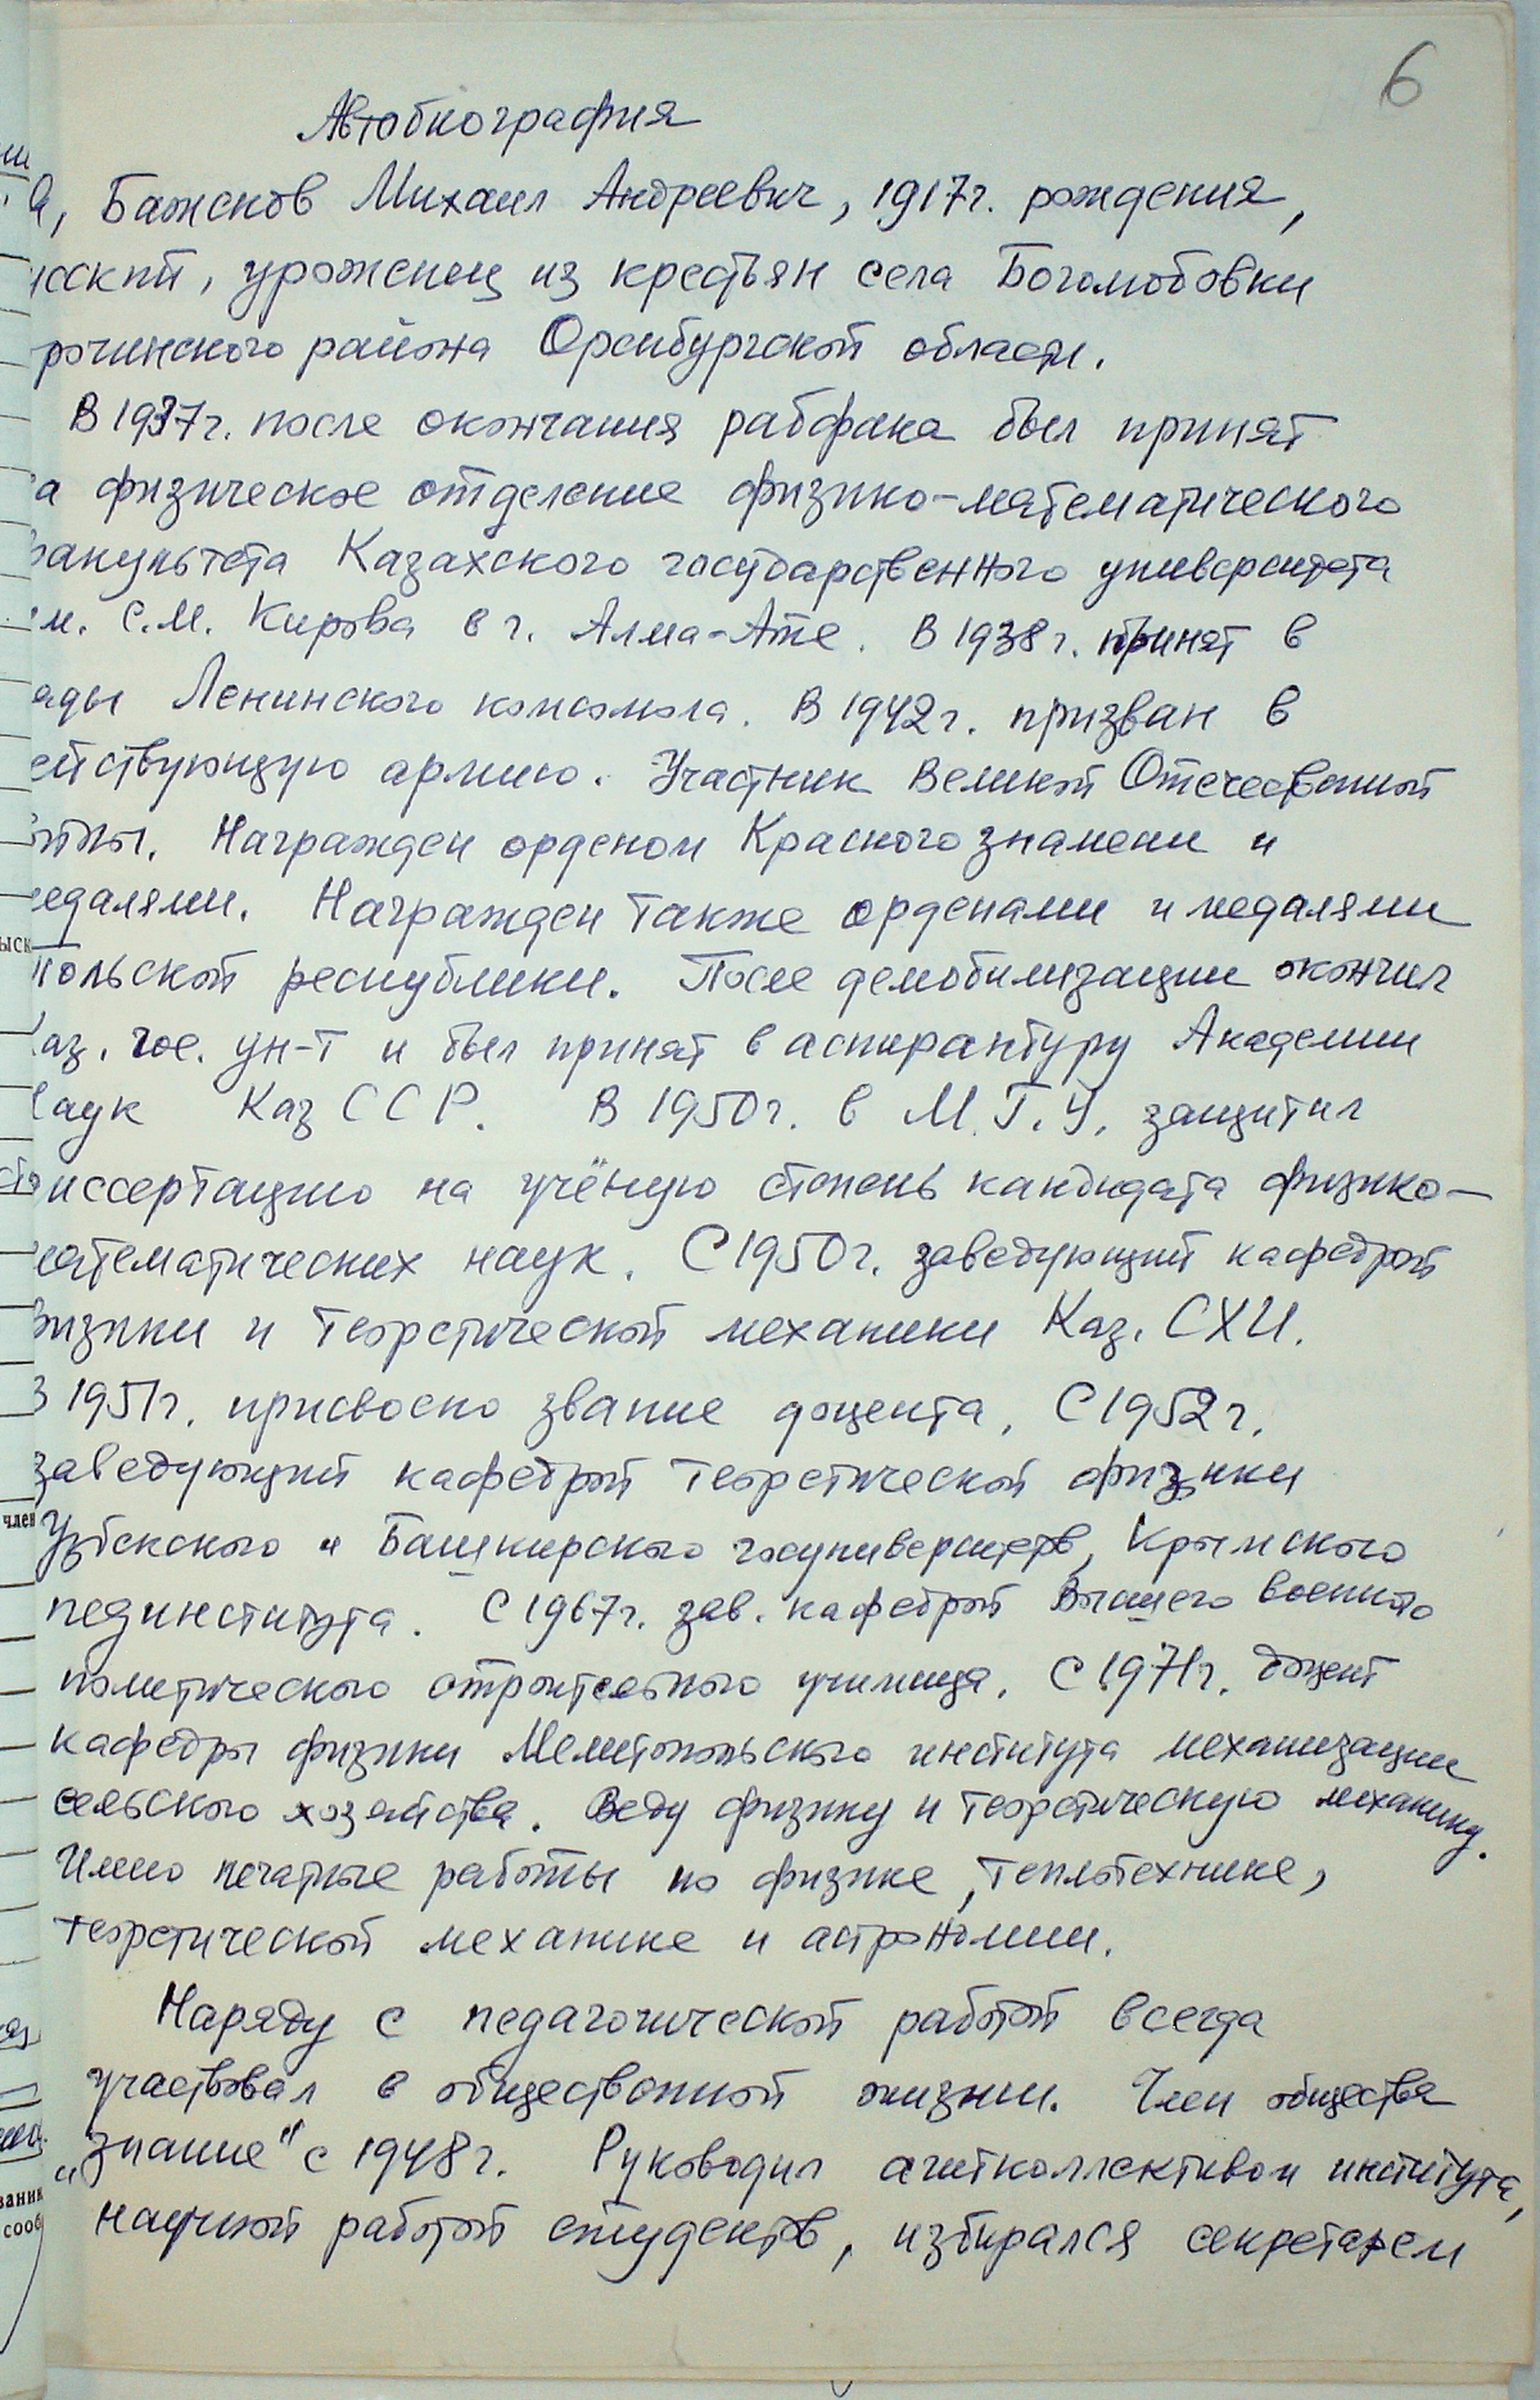 6
Автобиография
Я, Баженов Михаил Андреевич, 1917г. рождения,
усский, уроженец из крестьян села Боголюбовки
рочинского района Оренбургской области.
В 1937г. после окончания рабфака был принят
а физическое отделение физико-математического
факультета Казахского государственного университета
им. С.М. Кирова в г. Алма-Ате. В 1938г. принят в
яды Ленинского комсомола. В 1942г. призван в
ействующую армию. Участник Великой Отечественной
ойны. Награжден орденом Красного знамени и
медалями. Награжден также орденами и медалями
Польской республики. После демобилизации окончил
Каз. гос. ун-т и был принят в аспирантуру Академии
Наук Каз ССР. В 1950г. в М.Г.У. защитил
диссертацию на учёную степень кандидата физико-
математических наук. С 1950г. заведующий кафедрой
физики и теоретической механики Каз. СХИ.
В 1951г. присвоено звание доцента. С 1952г.
заведующий кафедрой теоретической физики
Узбекского и Башкирского госуниверситетов, Крымского
пединститута. С 1967г. зав. кафедрой Высшего военного
политического строительного училища. С 1971г. доцент
кафедры физики Мелитопольского института механизации
сельского хозяйства. Веду физику и теоретическую механику.
Имею печатные работы по физике, теплотехнике,
теоретической механике и астрономии.
Наряду с педагогической работой всегда
участвовал в общественной жизни. Член общества
„Знание" с 1948г. Руководил агитколлективом института,
научной работой студентов, избирался секретарем